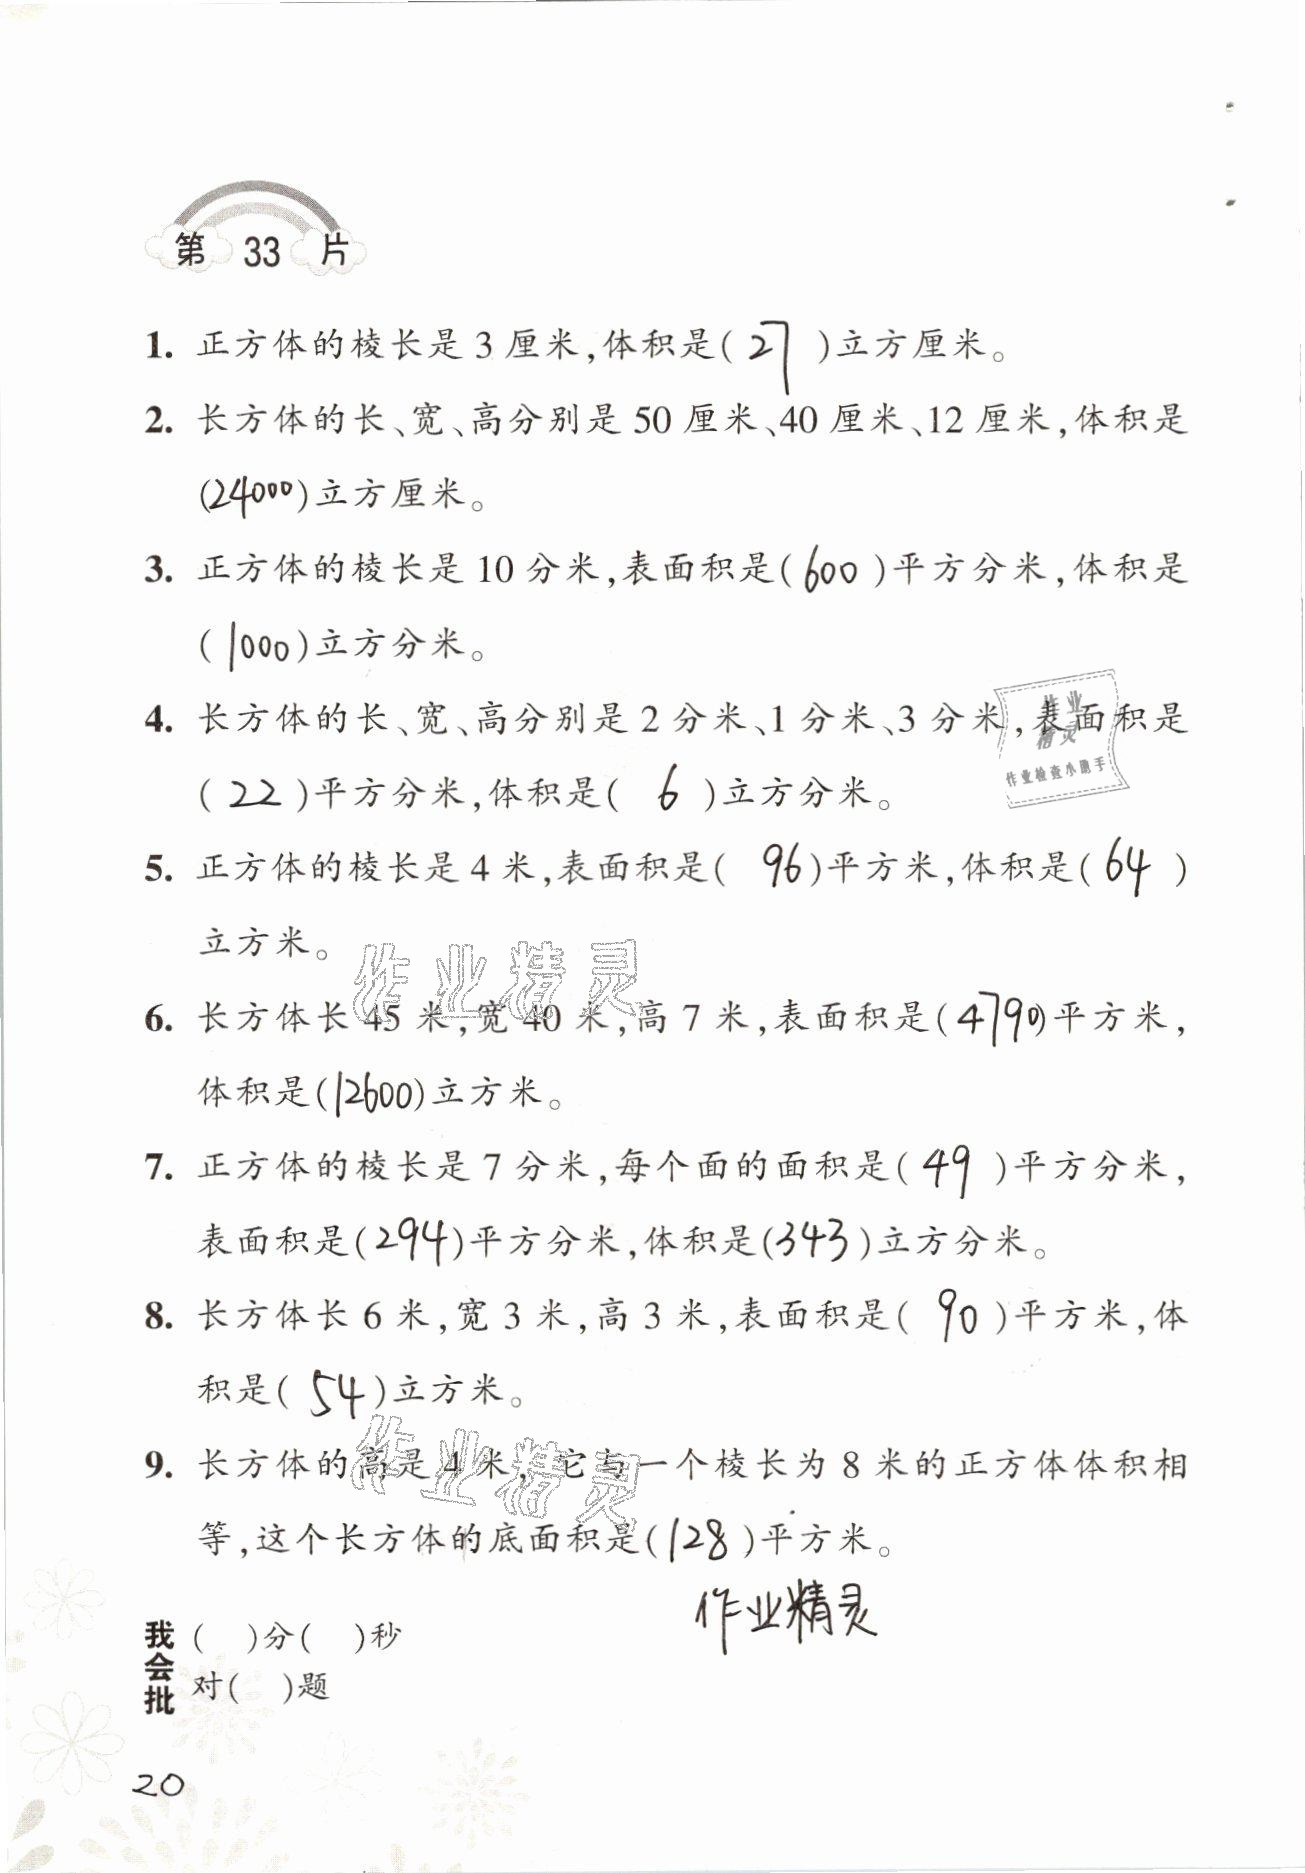 第 33 片
1. 正方体的棱长是 3 厘米,体积是( 27 )立方厘米。
2. 长方体的长、宽、高分别是 50 厘米、40 厘米、12 厘米,体积是
(24000)立方厘米。
3. 正方体的棱长是 10 分米,表面积是( 600 )平方分米,体积是
( 1000)立方分米。
4. 长方体的长、宽、高分别是 2 分米、1 分米、3 分米,表面积是
( 22 )平方分米,体积是( 6 )立方分米。
作业
精灵
作业检查小助手
5. 正方体的棱长是 4 米,表面积是( 96)平方米,体积是( 64 )
立方米。
作业精灵
6. 长方体长 45 米,宽 40 米,高 7 米,表面积是(4790)平方米,
体积是(12600)立方米。
7. 正方体的棱长是 7 分米,每个面的面积是( 49 )平方分米,
表面积是(294)平方分米,体积是(343)立方分米。
8. 长方体长 6 米,宽 3 米,高 3 米,表面积是( 90 )平方米,体
积是( 54 )立方米。
作业精灵
9. 长方体的高是 4 米,它与一个棱长为 8 米的正方体体积相
等,这个长方体的底面积是(128)平方米。
作业精灵
我会批
( )分( )秒
对( )题
20